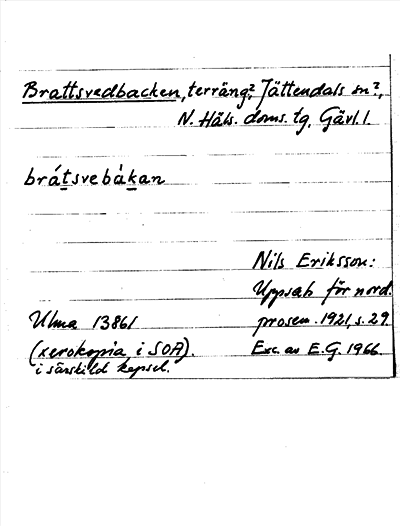 Brattsvedbacken, terräng?, Jättendals sn?,
N. Häls. doms. tg, Gävl. l.
brátsvebàkan
Nils Eriksson:
Uppsats för nord.
prosem. 1921, s. 29.
Ulma 13861
(xerokopia i SOA).
i särskild kapsel.
Exc. av E.G. 1966.